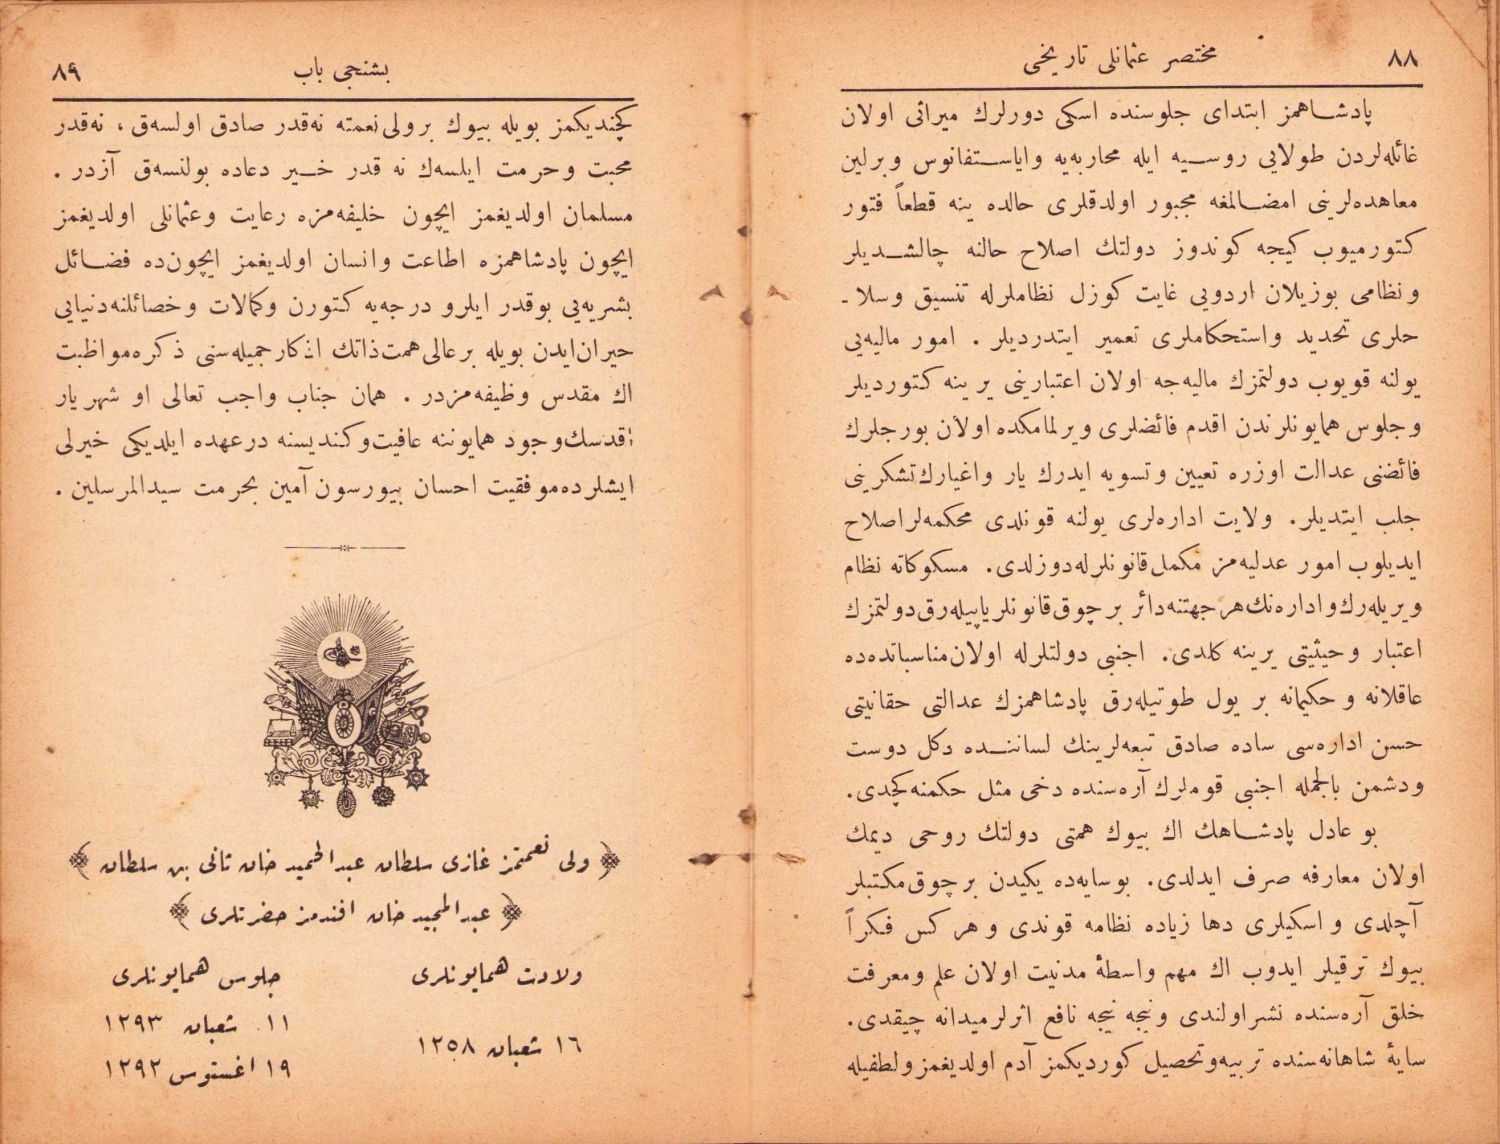 ٨٨
مختصر عثمانلی تاریخی
پادشاهمز ابتدای جلوسنده اسکی دورلرك میراثی اولان
غائله‌لردن طولایی روسیه ایله محاربه‌یه وایاستفانوس وبرلین
معاهده‌لرینی امضالمغه مجبور اولدقلری حالده ینه قطعاً فتور
کتورمیوب کیجه کوندوز دولتك اصلاح حالنه چالشدیلر
ونظامی بوزیلان اردویی غایت کوزل نظاملرله تنسیق وسلا-
حلری تجدید واستحکاملری تعمیر ایتدردیلر . امور مالیه‌یی
یولنه قویوب دولتمزك مالیه‌جه اولان اعتبارینی یرینه کتوردیلر
وجلوس همایونلرندن اقدم فائضلری ویرلمامکده اولان بورجلرك
فائضنی عدالت اوزره تعیین وتسویه ایدرك یار واغیارك تشکرینی
جلب ایتدیلر. ولایت اداره‌لری یولنه قونلدی محکمه‌لر اصلاح
ایدیلوب امور عدلیه‌مز مکمل قانونلرله دوزلدی. مسکوکاته نظام
ویریله‌رك واداره‌نك هر جهتنه دائر برچوق قانونلر یاپیله‌رق دولتمزك
اعتبار وحیثیتی یرینه کلدی. اجنبی دولتلرله اولان مناسباتده‌ده
عاقلانه و حکیمانه بر یول طوتیله‌رق پادشاهمزك عدالتی حقانیتی
حسن اداره‌سی ساده صادق تبعه‌لرینك لساننده دکل دوست
ودشمن بالجمله اجنبی قوملرك آره‌سنده دخی مثل حکمنه کچدی.
بو عادل پادشاهك اك بیوك همتی دولتك روحی دیمك
اولان معارفه صرف ایدلدی. بوسایه‌ده یکیدن برچوق مکتبلر
آچلدی و اسکیلری دها زیاده نظامه قوندی و هرکس فکراً
بیوك ترقیلر ایدوب اك مهم واسطهٔ مدنیت اولان علم ومعرفت
خلق آره‌سنده نشر اولندی ونیجه نیجه نافع اثرلر میدانه چیقدی.
سایهٔ شاهانه‌سنده تربیه وتحصیل کوردیکمز آدم اولدیغمز ولطفیله
بشنجی باب
٨٩
کچندیکمز بویله بیوك بر ولی نعمته نه‌قدر صادق اولسه‌ق، نه‌قدر
محبت وحرمت ایلسه‌ك نه قدر خیر دعاده بولنسه‌ق آزدر .
مسلمان اولدیغمز ایچون خلیفه‌مزه رعایت وعثمانلی اولدیغمز
ایچون پادشاهمزه اطاعت وانسان اولدیغمز ایچون‌ده فضائل
بشریه‌یی بوقدر ایلرو درجه‌یه کتورن وکمالات وخصائلنه دنیایی
حیران ایدن بویله بر عالی همت ذاتك اذکار جمیله‌سنی ذکره مواظبت
اك مقدس وظیفه‌مزدر . همان جناب واجب تعالی او شهریار
اقدسك وجود همایوننه عافیت وکندیسنه درعهده ایلدیکی خیرلی
ایشلرده موفقیت احسان بیورسون آمین بحرمت سیدالمرسلین .
﴿ ولی نعمتمز غازی سلطان عبدالحمید خان ثانی بن سلطان ﴾
﴿ عبدالمجید خان افندمز حضرتلری ﴾
ولادت همایونلری
١٦ شعبان ١٢٥٨
جلوس همایونلری
١١ شعبان ١٢٩٣
١٩ اغستوس ١٢٩٢